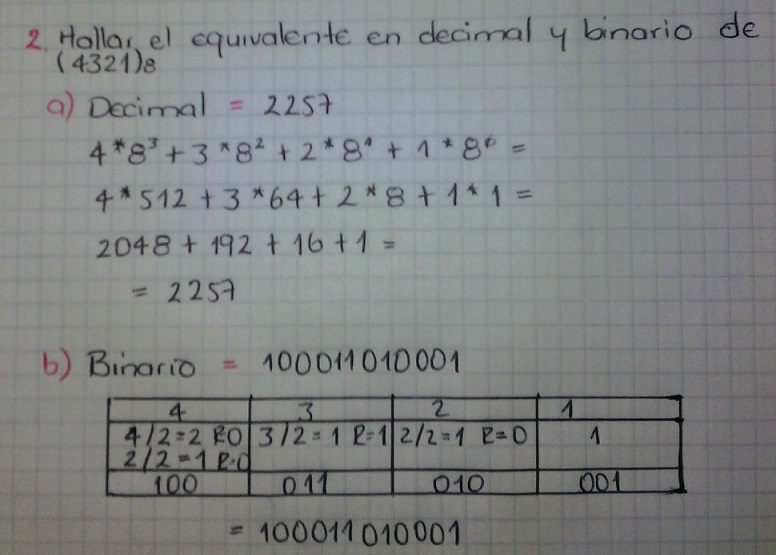 2. Hallar el equivalente en decimal y binario de
(4321)8
a) Decimal = 2257
4*8³ + 3*8² + 2*8¹ + 1*8⁰ =
4*512 + 3*64 + 2*8 + 1*1 =
2048 + 192 + 16 + 1 =
= 2257
b) Binario = 100011010001
4 3 2 1
4/2=2 R0 3/2=1 R=1 2/2=1 R=0 1
2/2=1 R=0
100 011 010 001
= 100011010001